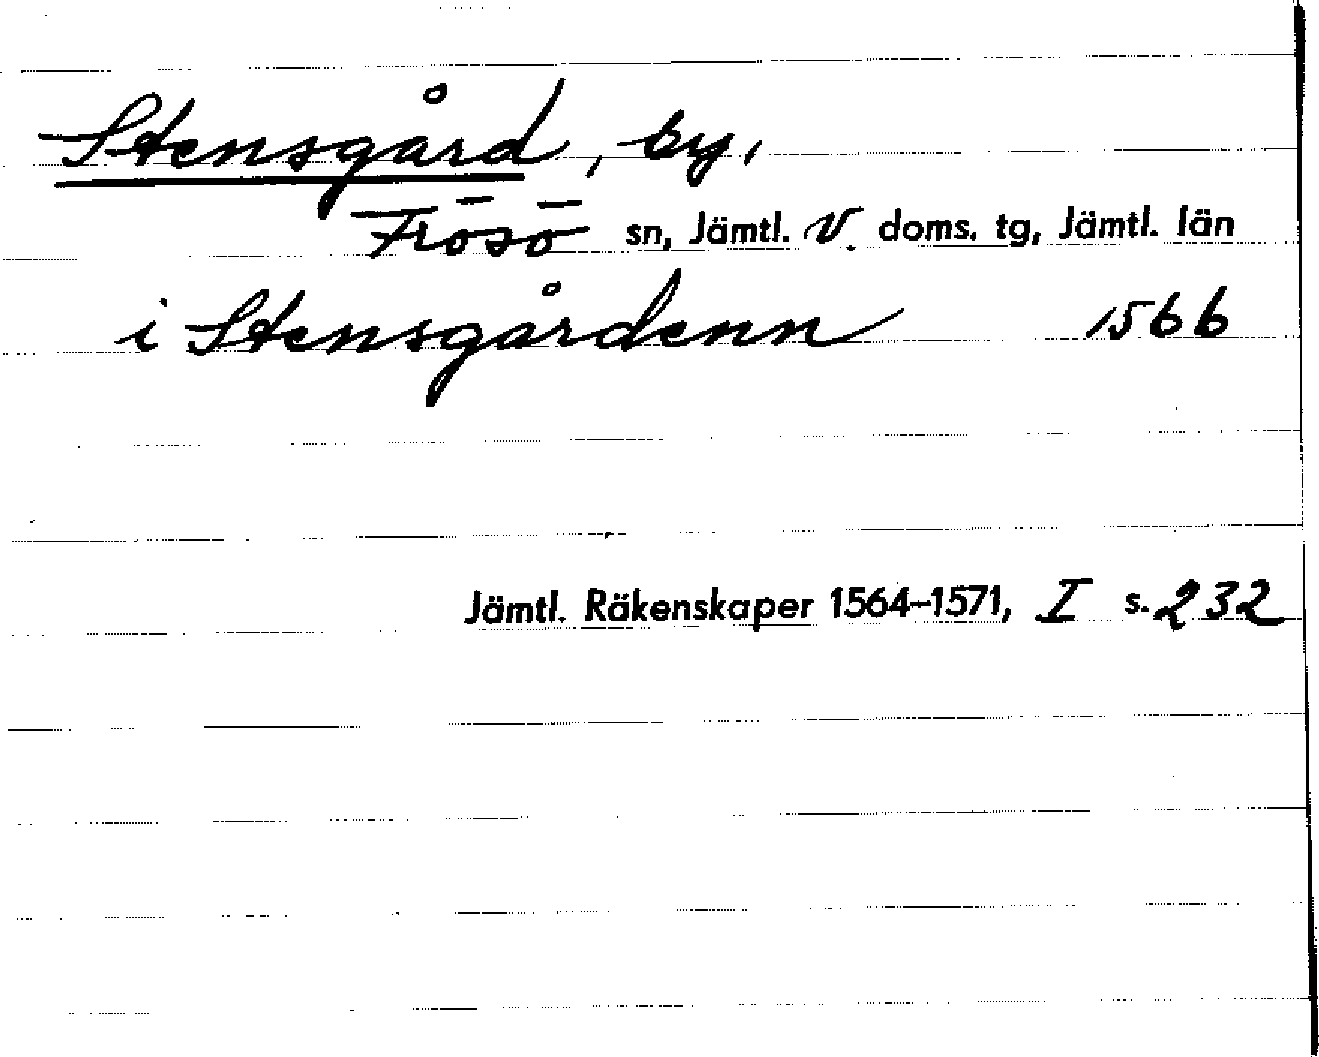 Stensgård, by,
Frösö sn, Jämtl. V. doms. tg, Jämtl. län
i Stensgårdenn 1566
Jämtl. Räkenskaper 1564-1571, I s. 232